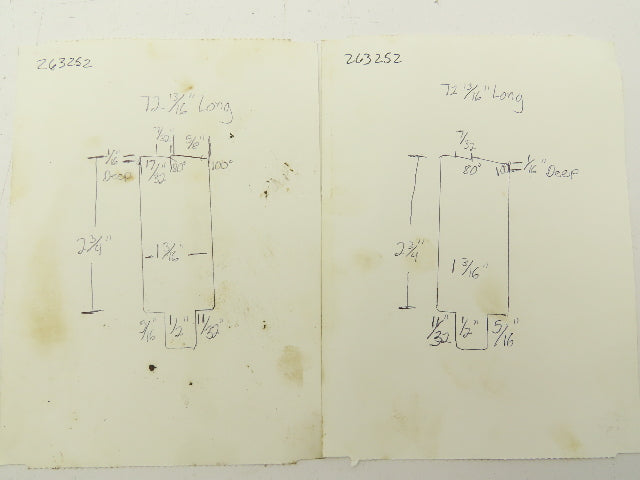 263252
72 13/16" Long
7/32"
5/8"
1/16"
Deep
17/32"
80°
100°
2 3/4"
1 3/16"
5/16"
1/2"
11/32"
263252
72 13/16" Long
7/32
80°
100
1/16" Deep
2 3/4"
1 3/16"
11/32"
1/2"
5/16"